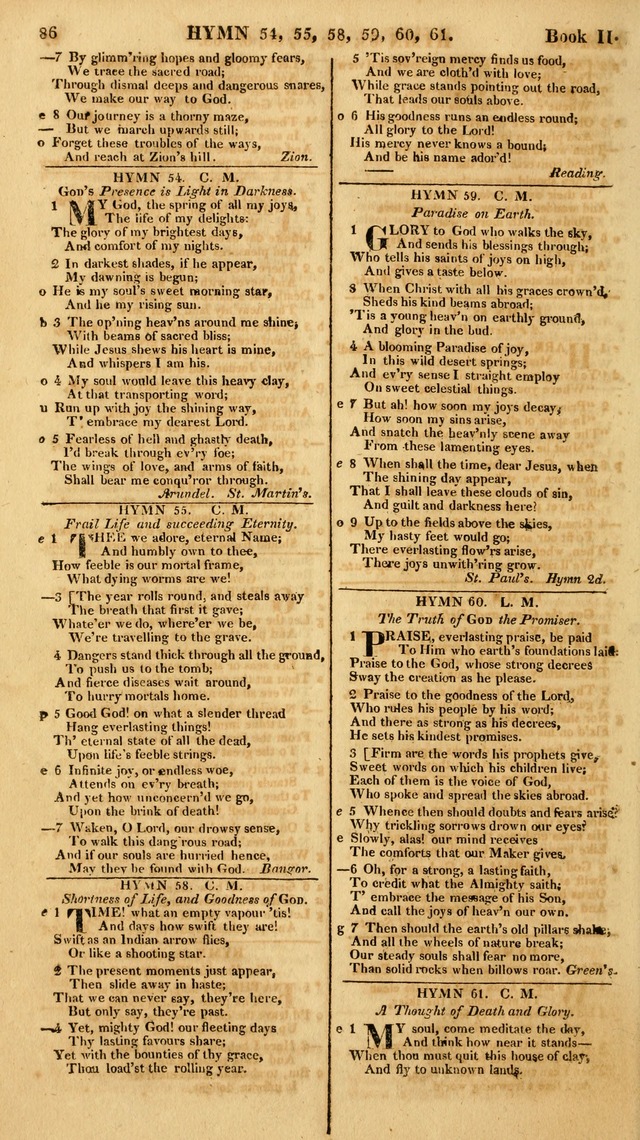 86 HYMN 54, 55, 58, 59, 60, 61. Book II.
—7 By glimm'ring hopes and gloomy fears,
We trace the sacred road;
Through dismal deeps and dangerous snares,
We make our way to God.
e 8 Our journey is a thorny maze,
— But we march upwards still;
o Forget these troubles of the ways,
And reach at Zion's hill. Zion.
HYMN 54. C. M.
GOD'S Presence is Light in Darkness.
1 MY God, the spring of all my joys,
The life of my delights:
The glory of my brightest days,
And comfort of my nights.
2 In darkest shades, if he appear,
My dawning is begun;
o He is my soul's sweet morning star,
And he my rising sun.
b 3 The op'ning heav'ns around me shine,
With beams of sacred bliss;
While Jesus shews his heart is mine,
And whispers I am his.
o 4 My soul would leave this heavy clay,
At that transporting word;
u Run up with joy the shining way,
T' embrace my dearest Lord.
o 5 Fearless of hell and ghastly death,
I'd break through ev'ry foe;
The wings of love, and arms of faith,
Shall bear me conqu'ror through.
Arundel. St. Martin's.
HYMN 55. C. M.
Frail Life and succeeding Eternity.
e 1 THEE we adore, eternal Name;
And humbly own to thee,
How feeble is our mortal frame,
What dying worms are we!
—3 [The year rolls round, and steals away
The breath that first it gave;
Whate'er we do, where'er we be,
We're travelling to the grave.
4 Dangers stand thick through all the ground,
To push us to the tomb;
And fierce diseases wait around,
To hurry mortals home.
p 5 Good God! on what a slender thread
Hang everlasting things!
Th' eternal state of all the dead,
Upon life's feeble strings.
e 6 Infinite joy, or endless woe,
Attends on ev'ry breath;
And yet how unconcern'd we go,
Upon the brink of death!
—7 Waken, O Lord, our drowsy sense,
To walk this dang'rous road;
And if our souls are hurried hence,
May they be found with God. Bangor.
HYMN 58. C. M.
Shortness of Life, and Goodness of GOD.
e 1 TIME! what an empty vapour 'tis!
And days how swift they are!
Swift as an Indian arrow flies,
Or like a shooting star.
2 The present moments just appear,
Then slide away in haste;
That we can never say, they're here,
But only say, they're past.
—4 Yet, mighty God! our fleeting days
Thy lasting favours share;
Yet with the bounties of thy grace,
Thou load'st the rolling year.
5 'Tis sov'reign mercy finds us food,
And we are cloth'd with love;
While grace stands pointing out the road,
That leads our souls above.
o 6 His goodness runs an endless round;
All glory to the Lord!
His mercy never knows a bound;
And be his name ador'd!
Reading.
HYMN 59. C. M.
Paradise on Earth.
1 GLORY to God who walks the sky,
And sends his blessings through;
Who tells his saints of joys on high,
And gives a taste below.
3 When Christ with all his graces crown'd,
Sheds his kind beams abroad;
'Tis a young heav'n on earthly ground,
And glory in the bud.
4 A blooming Paradise of joy,
In this wild desert springs;
And ev'ry sense I straight employ
On sweet celestial things.
e 7 But ah! how soon my joys decay,
How soon my sins arise,
And snatch the heav'nly scene away
From these lamenting eyes.
e 8 When shall the time, dear Jesus, when
The shining day appear,
That I shall leave these clouds of sin,
And guilt and darkness here?
o 9 Up to the fields above the skies,
My hasty feet would go;
There everlasting flow'rs arise,
There joys unwith'ring grow.
St. Paul's. Hymn 2d.
HYMN 60. L. M.
The Truth of GOD the Promiser.
1 PRAISE, everlasting praise, be paid
To Him who earth's foundations laid:
Praise to the God, whose strong decrees
Sway the creation as he please.
2 Praise to the goodness of the Lord,
Who rules his people by his word;
And there as strong as his decrees,
He sets his kindest promises.
3 [Firm are the words his prophets give,
Sweet words on which his children live;
Each of them is the voice of God,
Who spoke and spread the skies abroad.
e 5 Whence then should doubts and fears arise?
Why trickling sorrows drown our eyes?
e Slowly, alas! our mind receives
The comforts that our Maker gives.
—6 Oh, for a strong, a lasting faith,
To credit what the Almighty saith;
T' embrace the message of his Son,
And call the joys of heav'n our own.
g 7 Then should the earth's old pillars shake,
And all the wheels of nature break;
Our steady souls shall fear no more,
Than solid rocks when billows roar. Green's.
HYMN 61. C. M.
A Thought of Death and Glory.
e 1 MY soul, come meditate the day,
And think how near it stands—
When thou must quit this house of clay,
And fly to unknown lands.